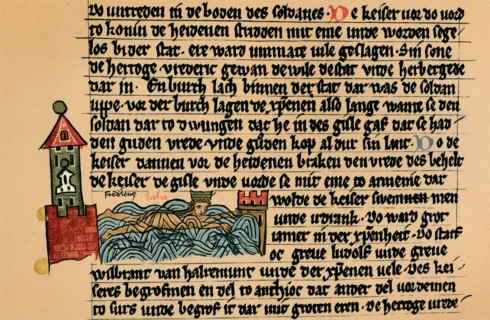 vo untreden in de boden des soldanes · De keiser vor do vord
to konin de heidenen stridden mit eme unde worden sege
los bi der stat · ere ward unmate vile geslagen · Sin sone
de hertoge vrederic gewan de wile de stat unde herbergede
dar in · En burch lach binnen der stat dar was de soldan
uppe · vor der burch lagen de xpenen also lange wante se den
soldan dar to dwungen dat he in des gisle gaf dat se had
den guden vrede unde guden kop al dur sin lant · Do de
keiser dannen vor de heidenen braken den vrede des behelt
de keiser de gisle unde vorde se mit eme to armenie dar
Fredericus
wolde de keiser swemmen
unde irdrank · Do ward grot
iamer in der xpenheit · Do starf
oc greve ludolf unde greve
wilbrant van halremunt unde der xpenen vele · Des kei
seres begrofmen en del to anthioc dat ander del vordemen
to surs unde begrof it dar mit groten eren · de hertoge vrede